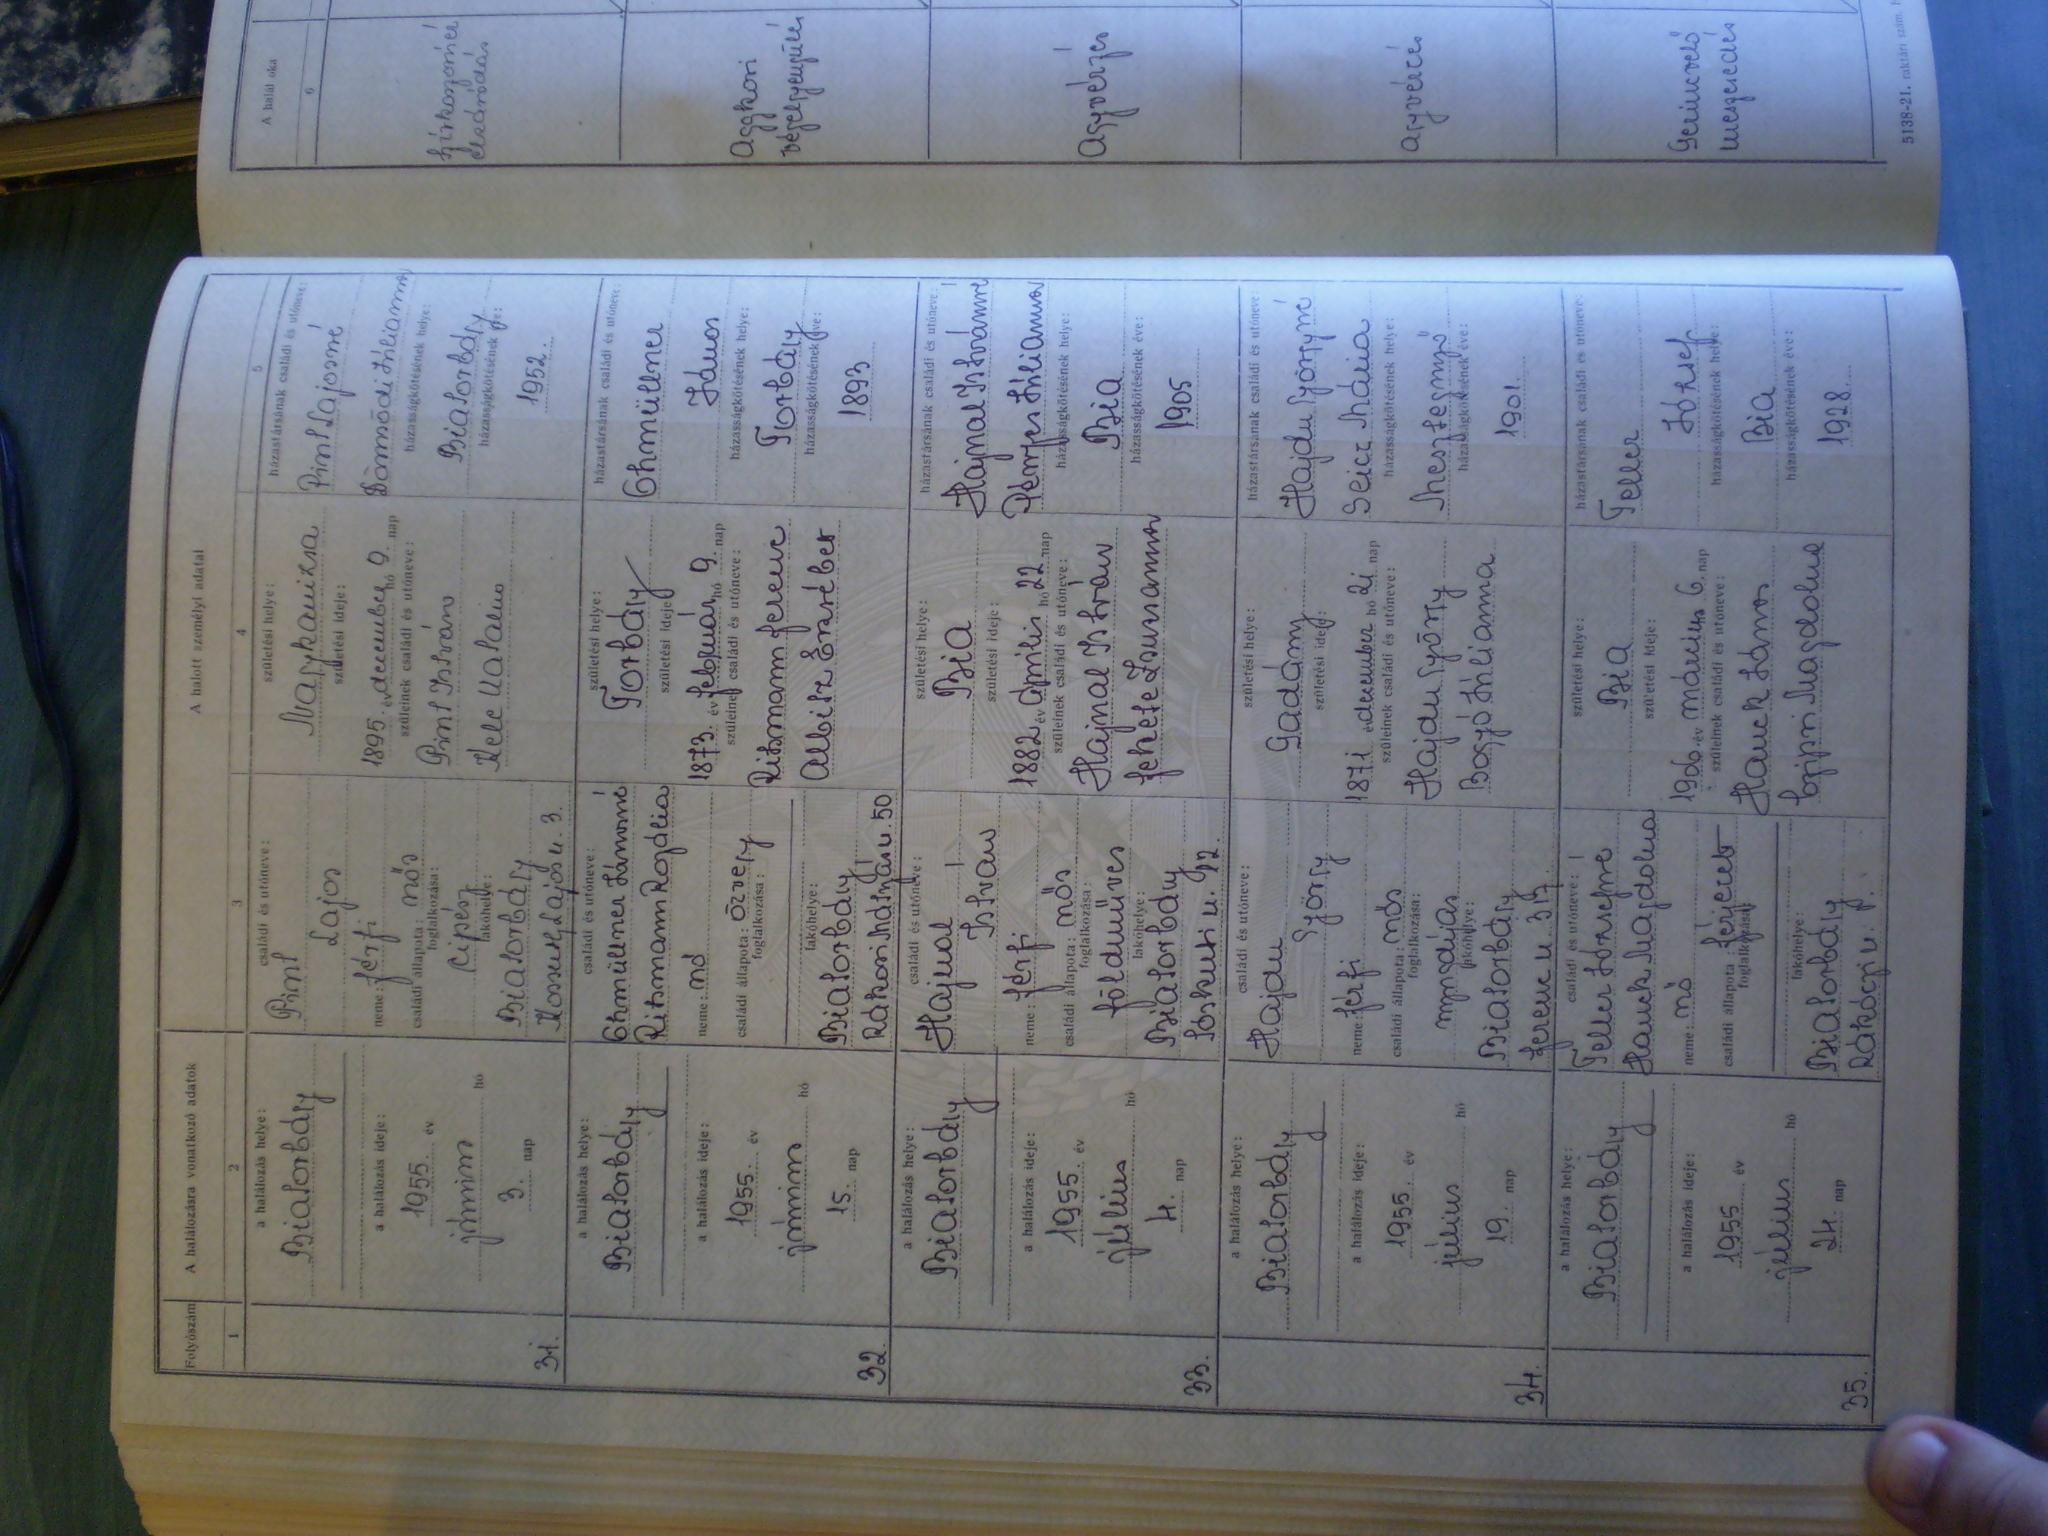 Folyószám
A halálozásra vonatkozó adatok
A halott személyi adatai
A halál oka
1
2
3
4
5
6
31.
a halálozás helye:
Biatorbágy
a halálozás ideje:
1955. év
június hó
3. nap
családi és utóneve:
Pint
Lajos
neme: férfi
családi állapota: nős
foglalkozása:
cipész
lakóhelye:
Biatorbágy
Kossuth Lajos u. 3.
születési helye:
Nagykanizsa
születési ideje:
1895. év december hó 9. nap
szüleinek családi és utóneve:
Pint István
Kele Katalin
házastársának családi és utóneve:
Pint Lajosné
Dömödi Juliánna
házasságkötésének helye:
Biatorbágy
házasságkötésének éve:
1952.
32.
a halálozás helye:
Biatorbágy
a halálozás ideje:
1955. év
június hó
15. nap
családi és utóneve:
Ohmüllner Jánosné
Ritsmann Rozália
neme: nő
családi állapota: özvegy
foglalkozása:
lakóhelye:
Biatorbágy
Rákosi Mátyás u. 50
születési helye:
Torbágy
születési ideje:
1873. év február hó 9. nap
szüleinek családi és utóneve:
Ritsmann Ferenc
Albitz Erzsébet
házastársának családi és utóneve:
Ohmüllner
János
házasságkötésének helye:
Torbágy
házasságkötésének éve:
1893
Aggkori
végelgyengülés
33.
a halálozás helye:
Biatorbágy
a halálozás ideje:
1955. év
július hó
4. nap
családi és utóneve:
Hajnal
István
neme: férfi
családi állapota: nős
foglalkozása:
földműves
lakóhelye:
Biatorbágy
Sóskuti u. 92.
születési helye:
Bia
születési ideje:
1882 év április hó 22. nap
szüleinek családi és utóneve:
Hajnal István
Fekete Zsuzsanna
házastársának családi és utóneve:
Hajnal Istvánné
Pénzes Juliánna
házasságkötésének helye:
Bia
házasságkötésének éve:
1905
Agyvérzés
34.
a halálozás helye:
Biatorbágy
a halálozás ideje:
1955. év
július hó
19. nap
családi és utóneve:
Hajdu
György
neme: férfi
családi állapota: nős
foglalkozása:
nyugdíjas
lakóhelye:
Biatorbágy
Ferenc u.
születési helye:
születési ideje:
1871 év december hó 21 nap
szüleinek családi és utóneve:
Hajdu György
Bogyó Juliánna
házastársának családi és utóneve:
Hajdu Györgyné
Mária
házasságkötésének helye:
házasságkötésének éve:
1901.
agyvérzés
35.
a halálozás helye:
Biatorbágy
a halálozás ideje:
1955 év
július hó
24. nap
családi és utóneve:
Teller Józsefné
Hauck Magdolna
neme: nő
családi állapota: férjezett
foglalkozása:
lakóhelye:
Biatorbágy
Rákóczi u. 7.
születési helye:
Bia
születési ideje:
1906. év március 6. nap
szüleinek családi és utóneve:
Hauck János
Czipri Magdolna
házastársának családi és utóneve:
Teller
József
házasságkötésének helye:
Bia
házasságkötésének éve:
1928.
Gerincvelő
5138-21. raktári szám.